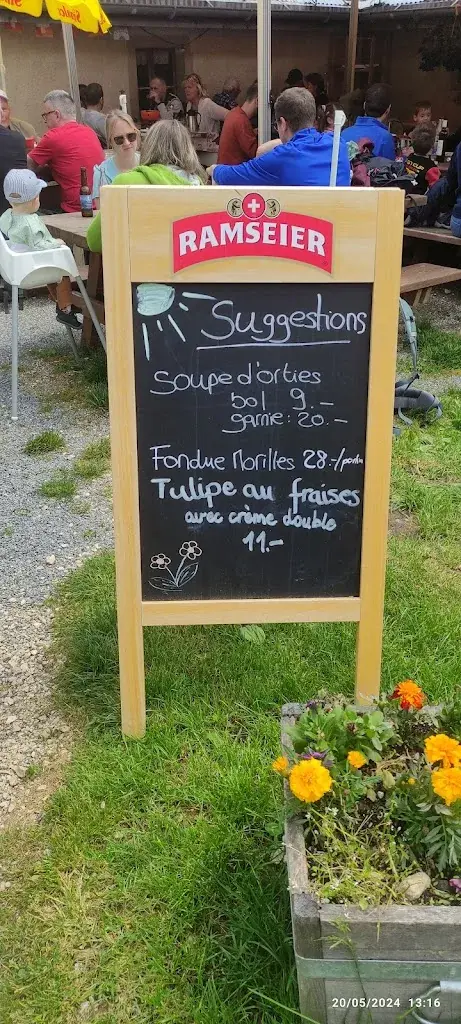 RAMSEIER
Suggestions
Soupe d'orties
bol 9.-
garnie: 20.-
Fondue Morilles 28.-/portion
Tulipe au fraises
avec crème double
11.-
20/05/2024 13:16